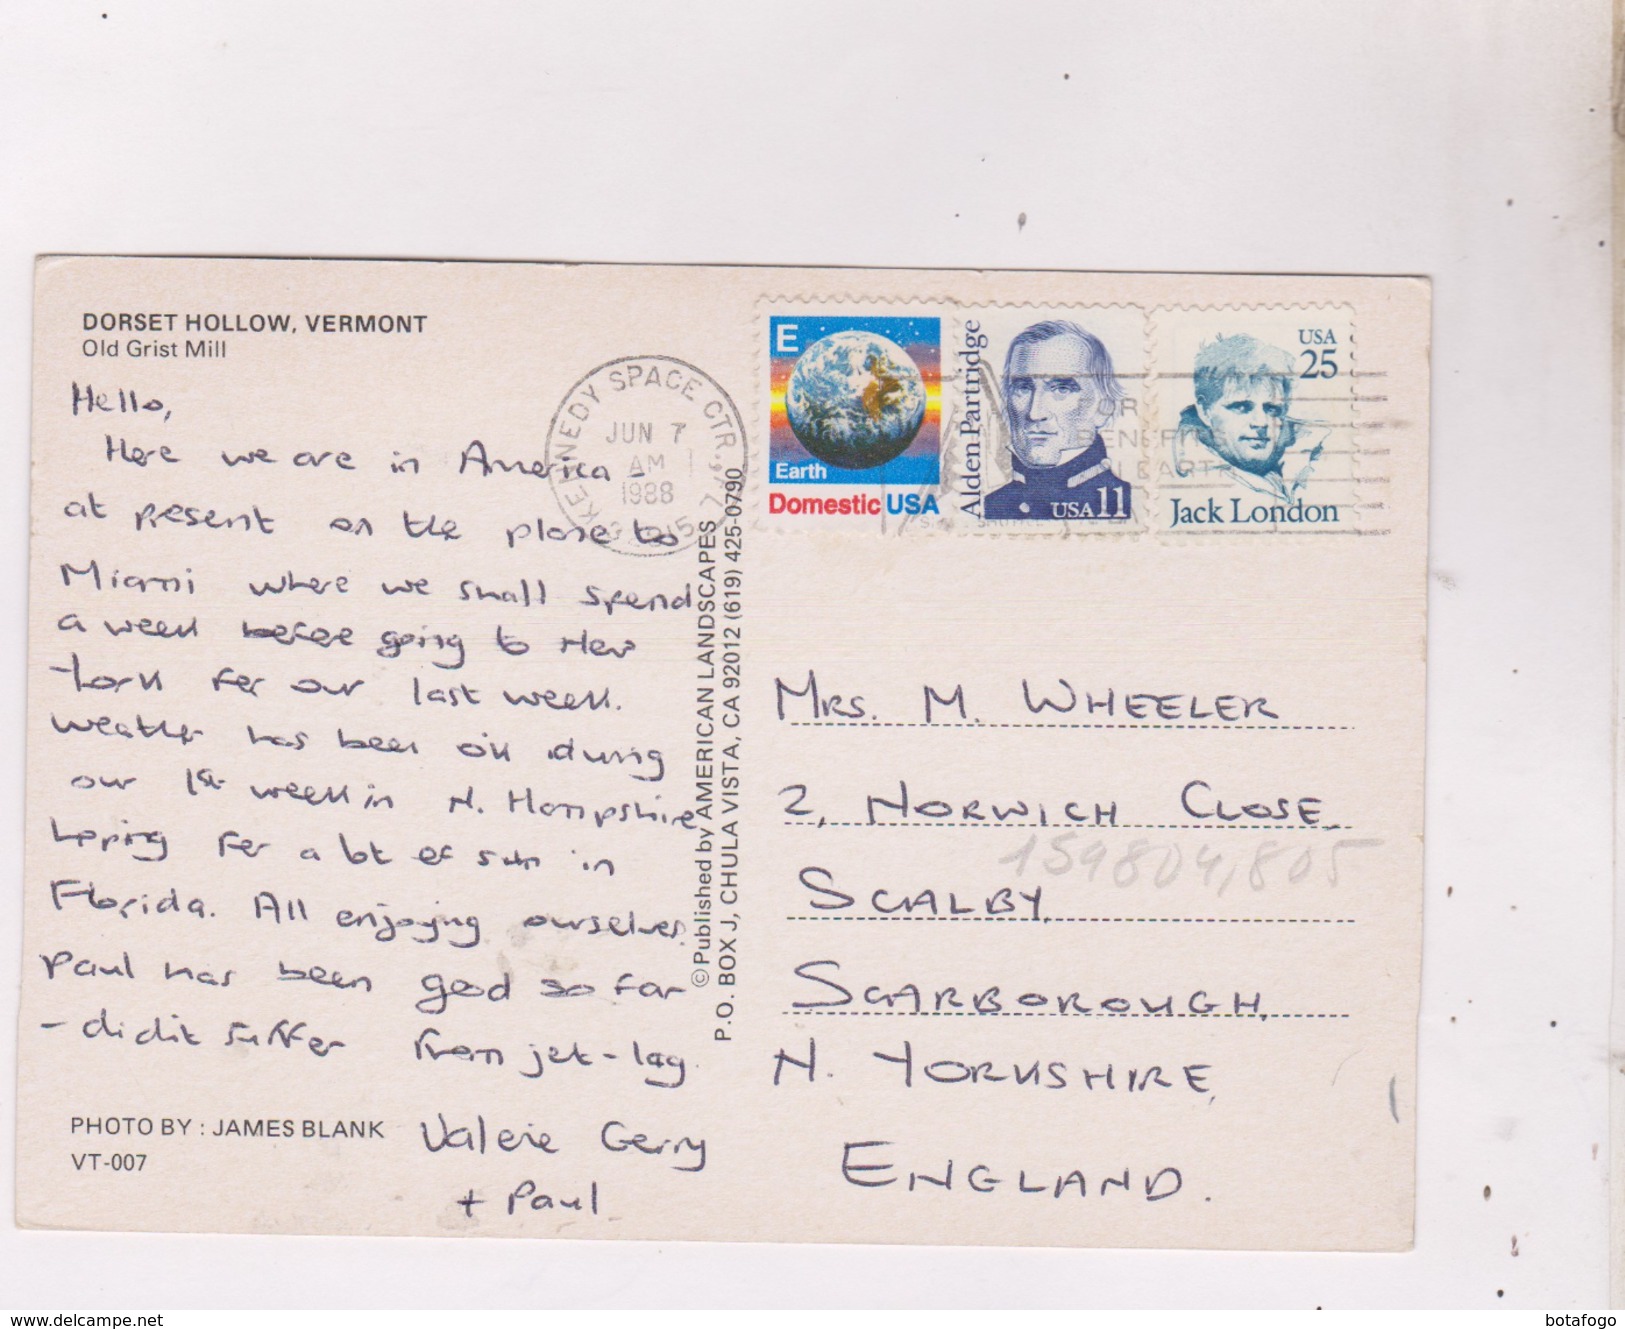 DORSET HOLLOW, VERMONT
Old Grist Mill
Hello,
Here we are in America -
at present on the plane to
Miami where we shall spend
a week before going to New
York for our last week.
Weather has been O.K during
our 1st week in N. Hampshire
hoping for a lot of sun in
Florida. All enjoying ourselves.
Paul has been good so far
- didn't suffer from jet-lag.
Valerie Gerry
+ Paul
PHOTO BY : JAMES BLANK
VT-007
©Published by AMERICAN LANDSCAPES
P.O. BOX J, CHULA VISTA, CA 92012 (619) 425-0790
KENNEDY SPACE CTR., FL
JUN 7
AM
1988
E
Earth
Domestic USA
Alden Partridge
USA 11
USA
25
Jack London
FOR
BENEFITS
MRS. M. WHEELER
2, NORWICH CLOSE,
SCALBY,
SCARBOROUGH,
N. YORKSHIRE,
ENGLAND.
159804,805
delcampe.net
botafogo